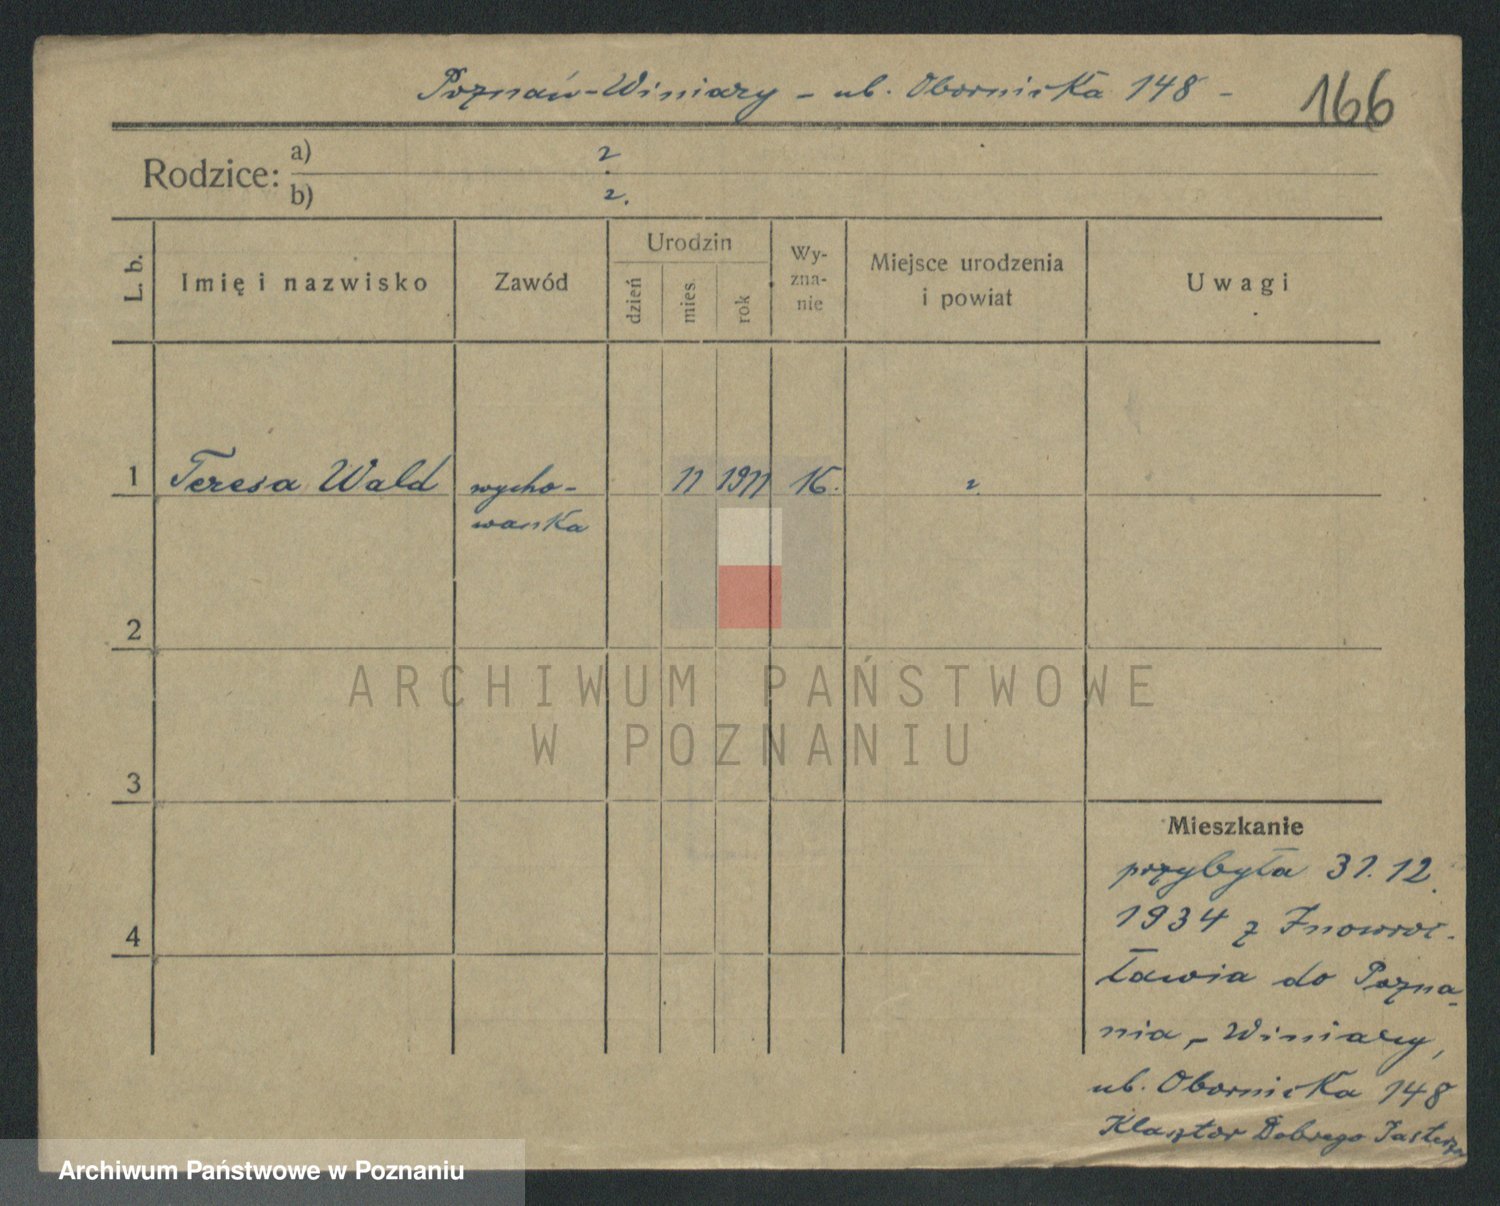 Poznań-Winiary - ul. Obornicka 148 -
166
Rodzice:
a) ?
b) ?
L. b.
Imię i nazwisko
Zawód
Urodzin
dzień
mies.
rok
Wy-
zna-
nie
Miejsce urodzenia
i powiat
Uwagi
1 Teresa Wald wycho- 11 1911 ?
wanka
2
3
4
Mieszkanie
przybyła 31.12.
1934 z Inowroc-
ławia do Pozna-
nia - Winiary,
ul. Obornicka 148
Klasztor Dobrego Pasterza
ARCHIWUM PAŃSTWOWE
W POZNANIU
Archiwum Państwowe w Poznaniu